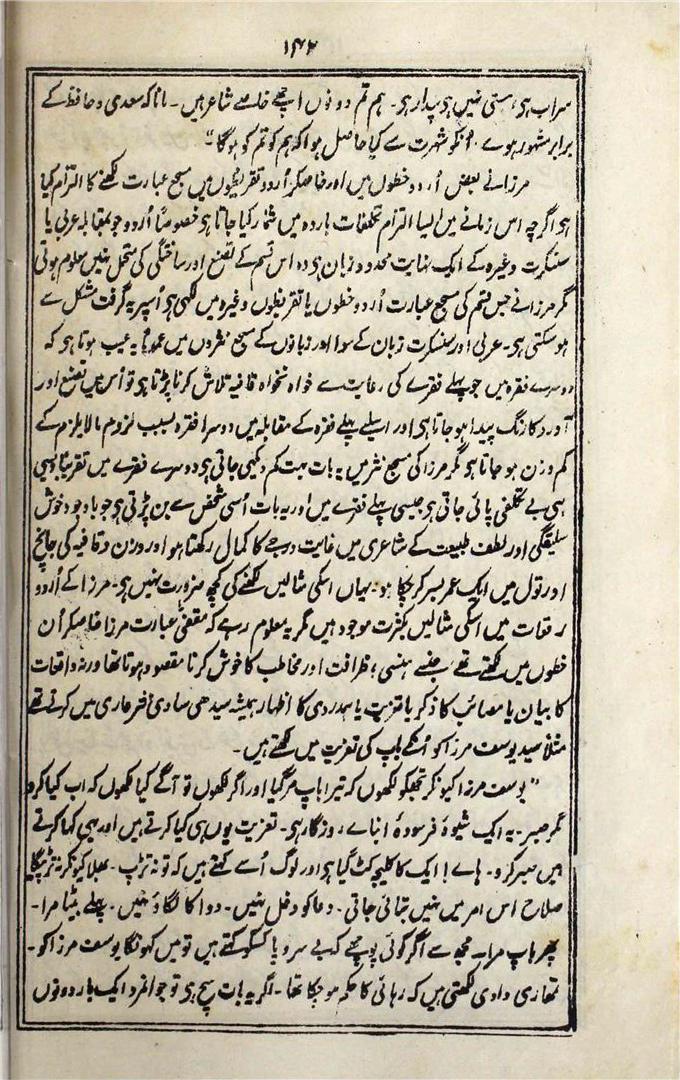 ۱۴۲
سراب ہی، ہستی نہیں ہی پندار ہی۔ ہم تم دونوں اچھے خاصے شاعر ہیں۔ مانا کہ سعدی و حافظ کے
برابر مشہور ہوے۔ اُنکو شہرت سے کیا حاصل ہوا کہ ہم کو تم کو ہوگا"
مرزا نے بعض اُردو خطوں میں اور خاصکر اُردو تقریظوں میں مسجع عبارت لکھنے کا التزام کیا
ہی اگرچہ اس زمانے میں ایسا التزام تکلفات باردہ میں شمار کیا جاتا ہی خصوصًا اُردو جو بمقابلہ عربی یا
سنسکرت وغیرہ کے ایک نہایت محدود زبان ہی وہ اس قسم کے تصنع اور ساختگی کی متحمل نہیں معلوم ہوتی
مگر مرزا نے جس قسم کی مسجع عبارت اُردو خطوں یا تقریظوں وغیرہ میں لکھی ہی اُسپر یہ گرفت مشکل سے
ہوسکتی ہی۔ عربی اور سنسکرت زبان کے سوا اور زبانوں کے مسجع نثروں میں عمومًا یہ عیب ہوتا ہی کہ
دوسرے فقرہ میں جو پہلے فقرے کی رعایت سے خواہ نخواہ قافیہ تلاش کرنا پڑتا ہی تو اُس میں تصنع اور
آورد کا رنگ پیدا ہو جاتا ہی اور اسلیے پہلے فقرہ کے مقابلہ میں دوسرا فقرہ بسبب لزوم مالایلزم کے
کم وزن ہو جاتا ہی مگر مرزا کی مسجع نثر میں یہ بات بہت کم دیکھی جاتی ہی دوسرے فقرے میں تقریبًا ویسی
ہی بے تکلفی پائی جاتی ہی جیسی پہلے فقرے میں اور یہ بات اُسی شخص سے بن پڑتی ہی جو باوجود خوش
سلیقگی اور لطف طبیعت کے شاعری میں غایت درجے کا کمال رکھتا ہو اور وزن و قافیہ کی جانچ
اور تول میں ایک عمر بسر کر چکا ہو۔ یہاں اسکی مثالیں لکھنے کی کچھ ضرورت نہیں ہی۔ مرزا کے اُردو
رقعات میں اسکی مثالیں بکثرت موجود ہیں مگر یہ معلوم رہے کہ مقفیٰ عبارت مرزا خاصکر اُن
خطوں میں لکھتے تھے جنسے ہنسی، ظرافت اور مخاطب کا خوش کرنا مقصود ہوتا تھا ورنہ واقعات
کا بیان یا مصائب کا ذکر یا تعزیت یا ہمدردی کا اظہار ہمیشہ سیدھی سادی نثر عاری میں کرتے تھے
مثلًا سید یوسف مرزا کو اُنکے باپ کی تعزیت میں لکھتے ہیں۔
"یوسف مرزا کیونکر تجھکو لکھوں کہ تیرا باپ مرگیا اور اگر لکھوں تو آگے کیا لکھوں کہ اب کیا کرو
مگر صبر۔ یہ ایک شیوۂ فرسودۂ ابناے روزگار ہی۔ تعزیت یوں ہی کیا کرتے ہیں اور یہی کہا کرتے
ہیں صبر کرو۔ ہاے! ایک کا کلیجہ کٹ گیا ہی اور لوگ اُسے کہتے ہیں کہ تو نہ تڑپ۔ بھلا کیونکر نہ تڑپیگا
صلاح اس امر میں نہیں بتائی جاتی۔ دعا کو دخل نہیں۔ دوا کا لگاؤ نہیں۔ پہلے بیٹا مرا۔
پھر باپ مرا۔ مجھ سے اگر کوئی پوچھے کہ بے سروپا کسکو کہتے ہیں تو میں کہونگا یوسف مرزا کو۔
تمھاری دادی لکھتی ہیں کہ رہائی کا حکم ہو چکا تھا۔ اگر یہ بات سچ ہی تو جوانمرد ایک بار دونوں